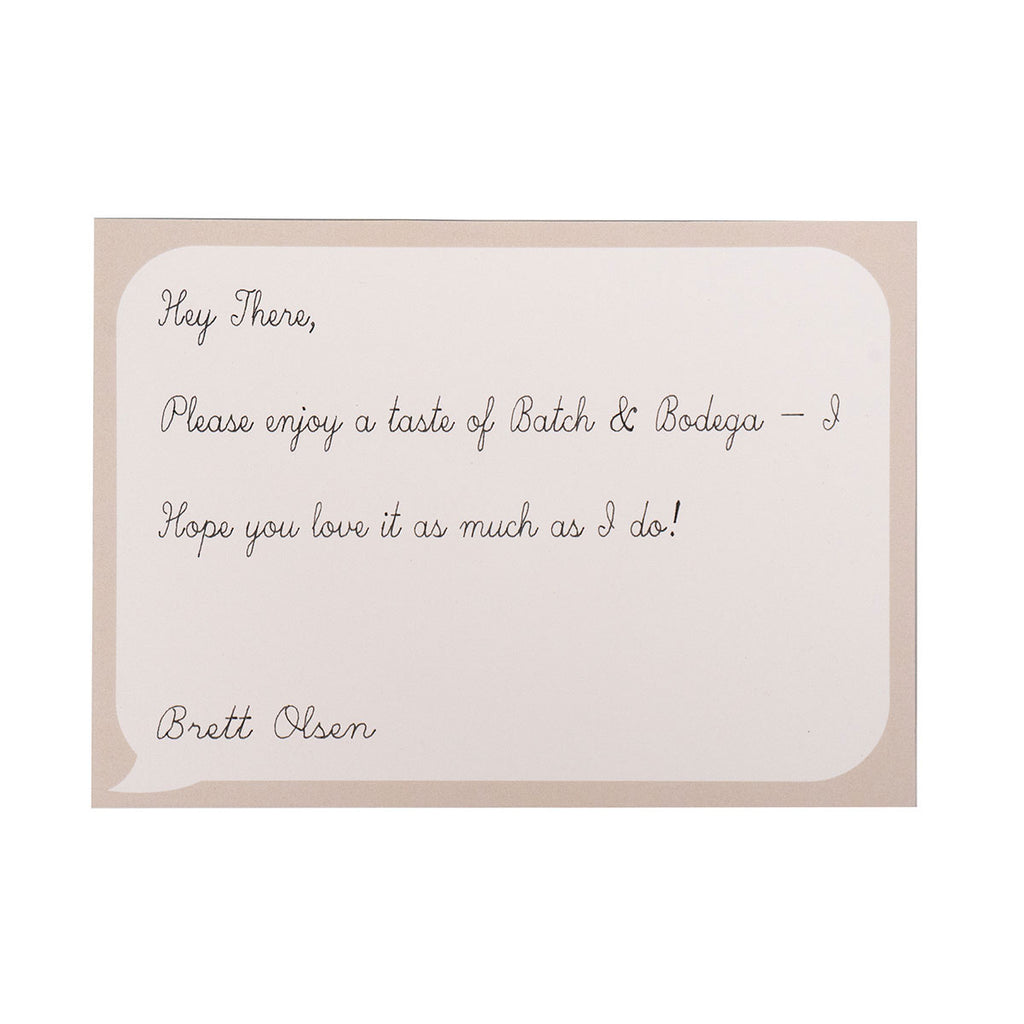 Hey There,
Please enjoy a taste of Batch & Bodega – I
Hope you love it as much as I do!
Brett Olsen